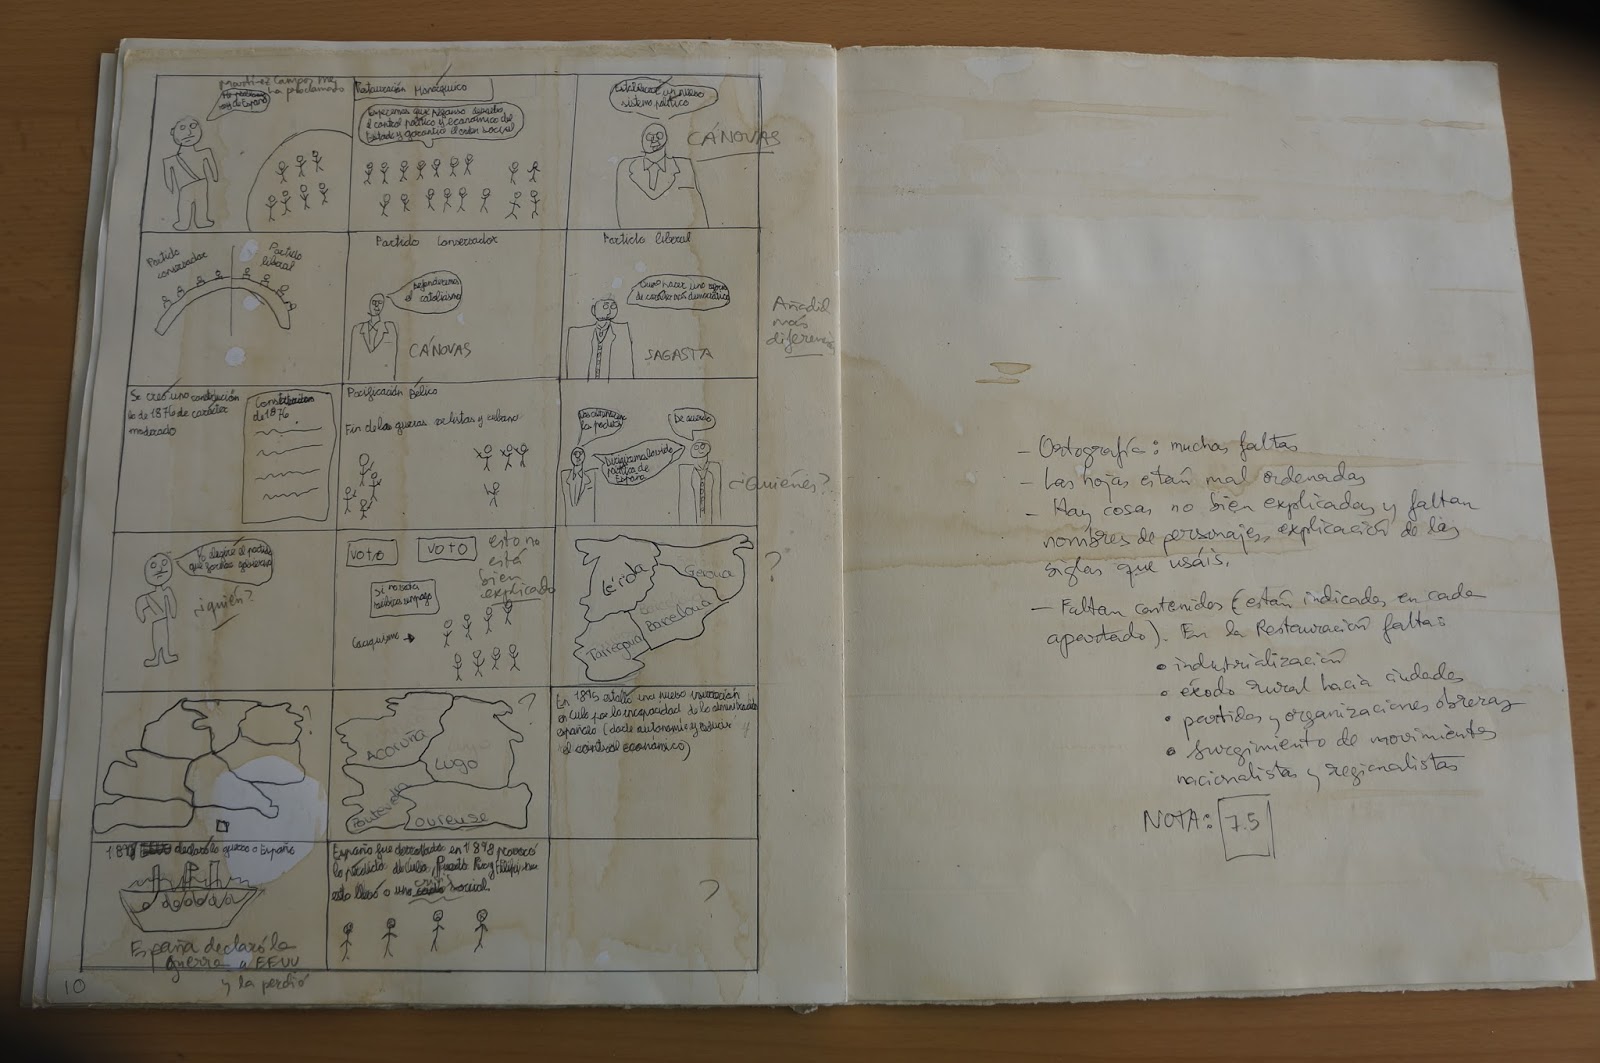 Martínez Campos me
ha proclamado
rey de España
Restauración Monárquico
Esperemos que Alfonso
el control político y económico del
Estado y garantice el orden social
Establecer un nuevo
sistema político
CÁNOVAS
Partido
conservador
Partido
liberal
Partido Conservador
Defenderemos
el catolicismo
CÁNOVAS
Partido liberal
de carácter más democrático
SAGASTA
Añadid
más
Se creó una constitución
la de 1876 de carácter
moderado
Constitución
de 1876
Pacificación bélico
Fin de las guerras carlistas y cubana
De acuerdo
política de
España
¿Quiénes?
Yo elegiré al partido
que
¿quién?
VOTO
VOTO
esto no
está
bien
explicado
Si no vota
Caciquismo →
Lérida
Gerona
Barcelona
Tarragona
?
?
Acoruña
Lugo
Pontevedra
ourense
?
En 1895 estalló una nueva insurrección
en Cuba por la incapacidad de la
español (darle autonomía y reducir
el control económico)
declaró la guerra a España
España declaró la
guerra a EEUU
y la perdió
España fue derrotada en 1898 provocó
la pérdida de Cuba, Puerto Rico y Filipinas
esto llevó a una crisis social.
?
10
- Ortografía: muchas faltas
- Las hojas están mal ordenadas
- Hay cosas no bien explicadas y faltan
nombres de personajes, explicación de las
siglas que usáis.
- Faltan contenidos (están indicados en cada
apartado). En la Restauración faltas
• industrialización
• éxodo rural hacia ciudades
• partidos y organizaciones obreras
• surgimiento de movimientos
nacionalistas y regionalistas
NOTA: 7.5